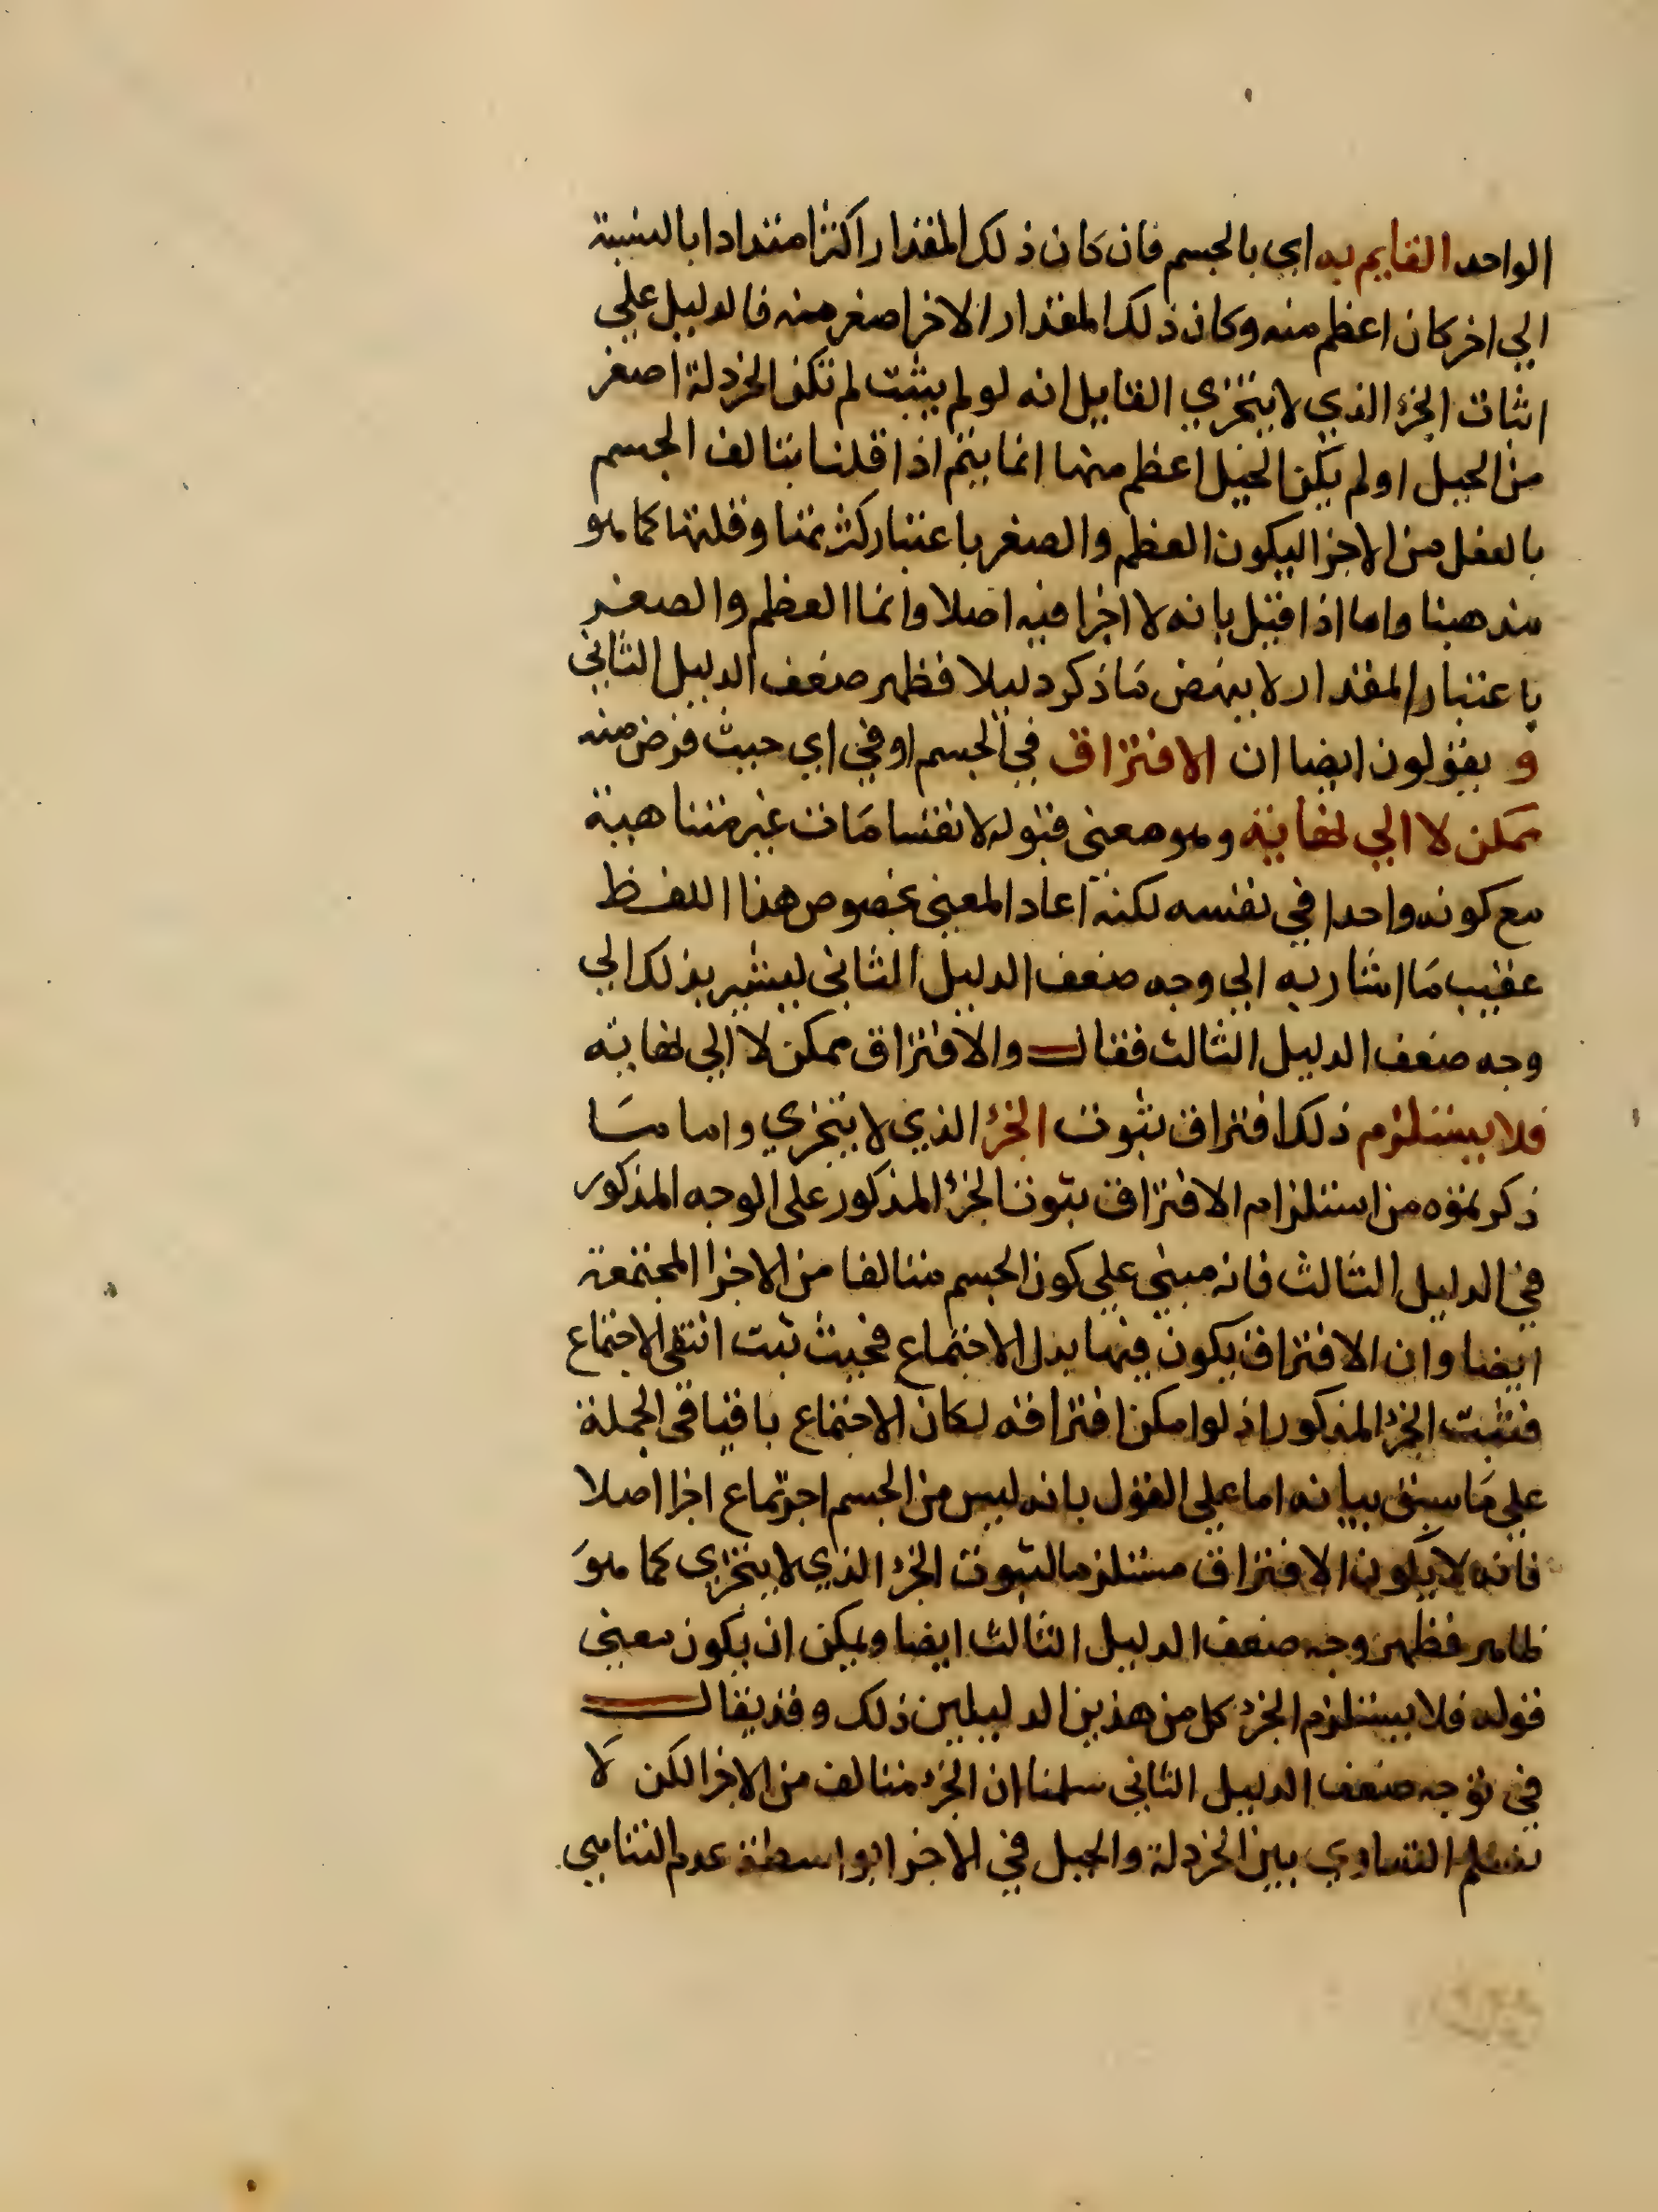 الواحد القايم به اي بالجسم فان كان ذلك المقدار اكثر امتدادا بالنسبة
الي اخر كان اعظم منه وكان ذلك المقدار الاخر اصغر منه فالدليل علي
اثبات الجزء الذي لا يتجزي القايل انه لو لم يثبت لم تكن الخردلة اصغر
من الجبل او لم يكن الجبل اعظم منها انما يتم اذا قلنا بتالف الجسم
بالفعل من الاجزا ليكون العظم والصغر باعتبار كثرتها وقلتها كما هو
مذهبنا واما اذا قيل بانه لا اجزا فيه اصلا وانما العظم والصغر
باعتبار المقدار لا ينهض ما ذكر دليلا فظهر ضعف الدليل الثاني
و يقولون ايضا ان الافتراق في الجسم او في اي حيث فرض منه
ممكن لا الي نهاية وهو معني قبوله لانقسامات غير متناهية
مع كونه واحدا في نفسه لكنه اعاد المعني بخصوص هذا اللفظ
عقيب ما اشار به الي وجه ضعف الدليل الثاني ليشير بذلك الي
وجه ضعف الدليل الثالث فقال والافتراق ممكن لا الي نهاية
فلا يستلزم ذلك افتراق ثبوت الجزء الذي لا يتجزي واما ما
ذكرتموه من استلزام الافتراق ثبوت الجزء المذكور علي الوجه المذكور
في الدليل الثالث فانه مبني علي كون الجسم متالفا من الاجزا المجتمعة
ايضا وان الافتراق يكون فيها بدل الاجتماع فحيث ثبت انتفي الاجتماع
فثبت الجزء المذكور اذ لو امكن افتراقه لكان الاجتماع باقيا في الجملة
علي ما سبق بيانه اما علي القول بانه ليس من الجسم اجتماع اجزا اصلا
فانه لا يكون الافتراق مستلزما لثبوت الجزء الذي لا يتجزي كما هو
ظاهر فظهر وجه ضعف الدليل الثالث ايضا ويمكن ان يكون معني
قوله فلا يستلزم الجزء كل من هذين الدليلين ذلك وقد يقال
في توجه ضعف الدليل الثاني سلمنا ان الجزء متالف من الاجزا لكن لا
نسلم التساوي بين الخردلة والجبل في الاجزا بواسطة عدم التناهي